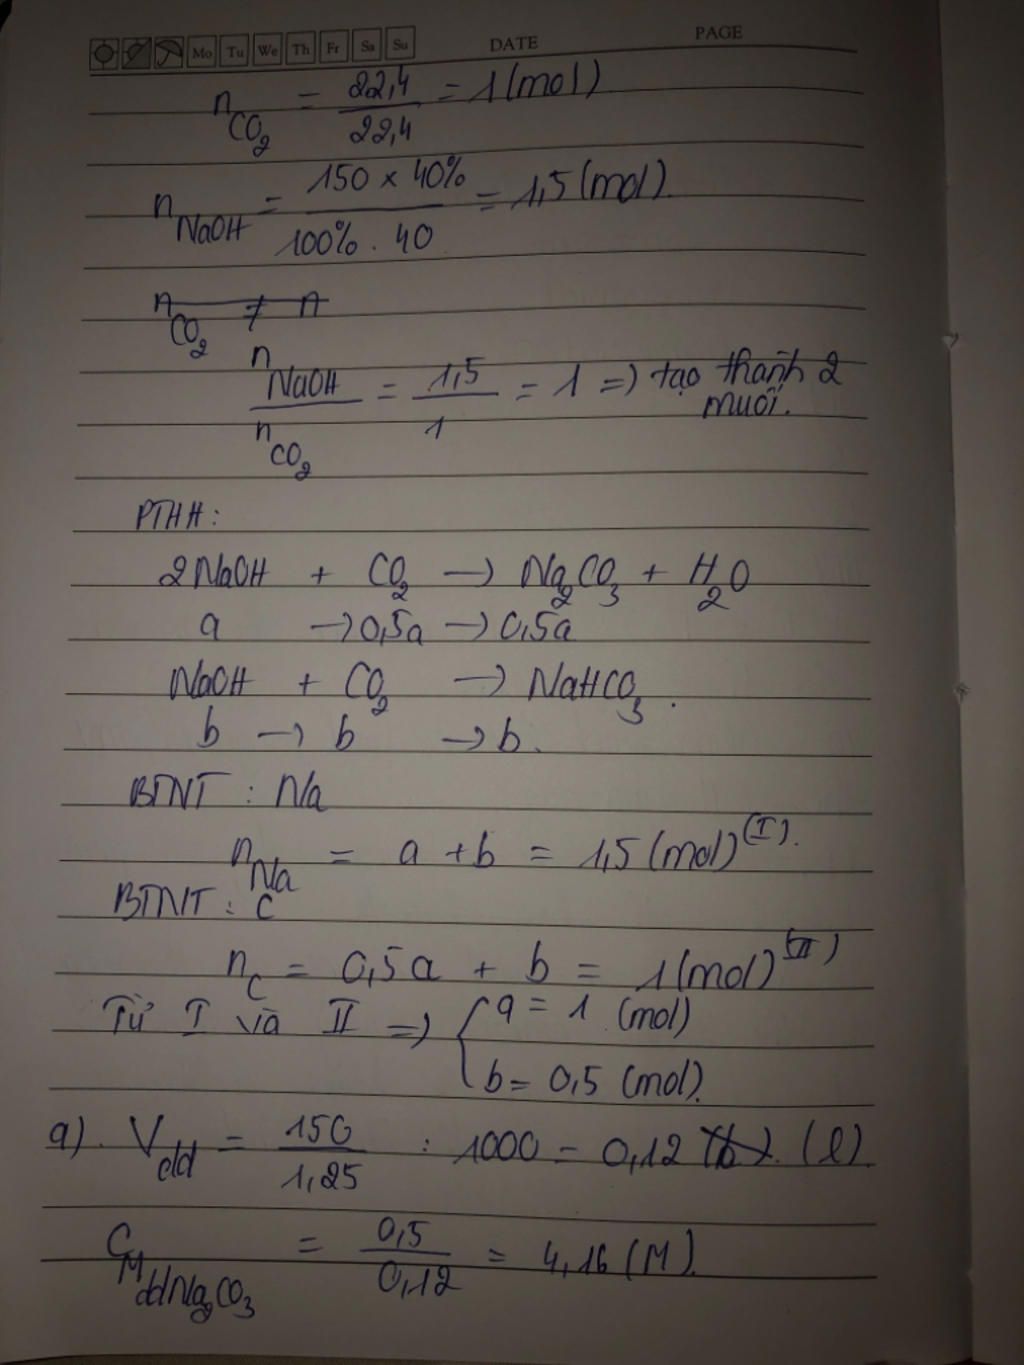 Mo Tu We Th Fr Sa Su DATE PAGE
n_CO₂ = 22,4 / 22,4 = 1 (mol)
n_NaOH = 150 × 40% / 100% . 40 = 1,5 (mol).
n_CO₂ ≠ n
n_NaOH / n_CO₂ = 1,5 / 1 = 1 => tạo thành 2 muối.
PTHH:
2NaOH + CO₂ → Na₂CO₃ + H₂O
a → 0,5a → 0,5a
NaOH + CO₂ → NaHCO₃.
b → b → b.
BTNT : Na
n_Na = a + b = 1,5 (mol) (I).
BTNT : C
n_C = 0,5a + b = 1 (mol) (II)
Từ I và II => { a = 1 (mol)
b = 0,5 (mol).
a). V_dd = 150 / 1,25 : 1000 = 0,12 (l).
C_M ddNa₂CO₃ = 0,5 / 0,12 = 4,16 (M).